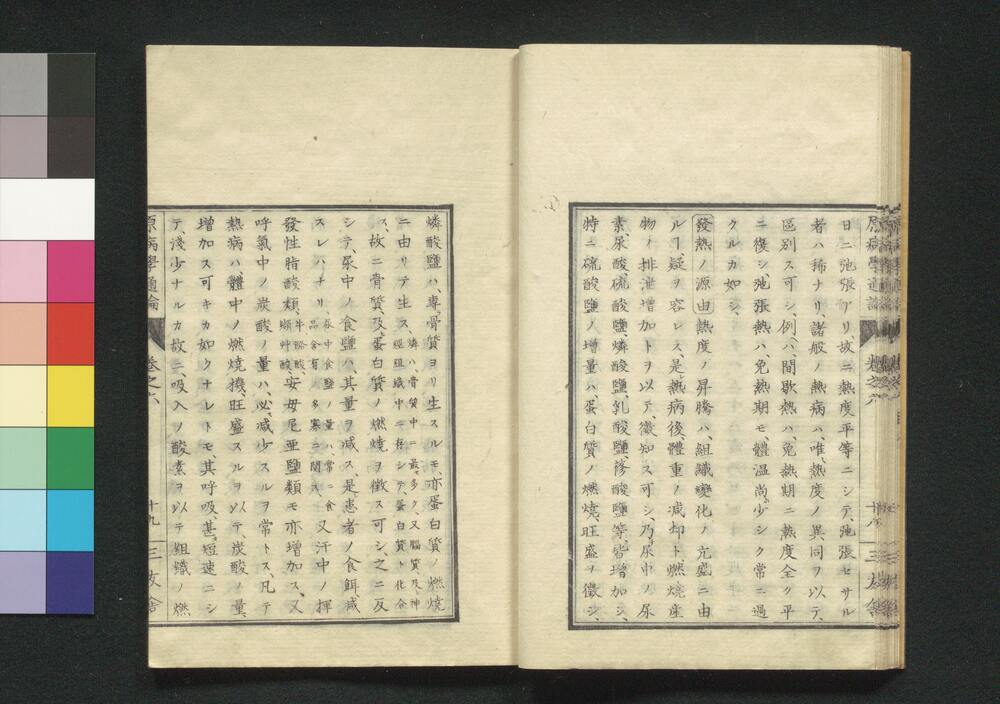 日ニ弛張アリ故ニ熱度平等ニシテ、弛張セサル
者ハ稀ナリ、諸般ノ熱病ハ、唯熱度ノ異同ヲ以テ、
區別ス可シ、例ハ、間歇熱ハ、免熱期ニ熱度全ク平
ニ復シ、弛張熱ハ、免熱期モ、體温尚少シク常ニ過
クルカ如シ、
發熱ノ源由 熱度ノ昇騰ハ、組織變化ノ亢盛ニ由
ルヿ疑ヲ容レス、是熱病後、體重ノ減却ト燃燒産
物ノ排泄増加トヲ以テ、徴知ス可シ、乃尿中ノ尿
素尿酸、硫酸鹽燐酸鹽、乳酸鹽、蓚酸鹽等、皆増加シ、
特ニ硫酸鹽ノ増量ハ、蛋白質ノ燃燒、旺盛ヲ徴シ、
原病學通論 卷之六 十八 三友舎
燐酸鹽ハ、專骨質ヨリ生スルモ、亦蛋白質ノ燃燒
ニ由リテ生ス、燐ハ、骨質中ニ最多ク、又腦質及神
經組織中ニ存シテ、蛋白質ト化合
ス、故ニ骨質及蛋白質ノ燃燒ヲ徴ス可シ、之ニ反
シテ、尿中ノ食鹽ハ、其量ヲ減ス、是患者ノ食餌減
スレハナリ、尿中食鹽ノ量ハ、常ニ食
品含有ノ多寡ニ關ス、又汗中ノ揮
發性脂酸類、牛酪酸、
蟻酸、安母尼亜鹽類モ亦増加ス、又
呼氣中ノ炭酸ノ量ハ、必減少スルヲ常トス、凡テ
熱病ハ體中ノ燃燒機、旺盛スルヲ以テ炭酸ノ量、
増加ス可キカ如クナレトモ、其呼吸、甚短速ニシ
テ、淺少ナルカ故ニ、吸入ノ酸素ヲ以テ組織ノ燃
原病學通論 卷之六 十九 三友舎